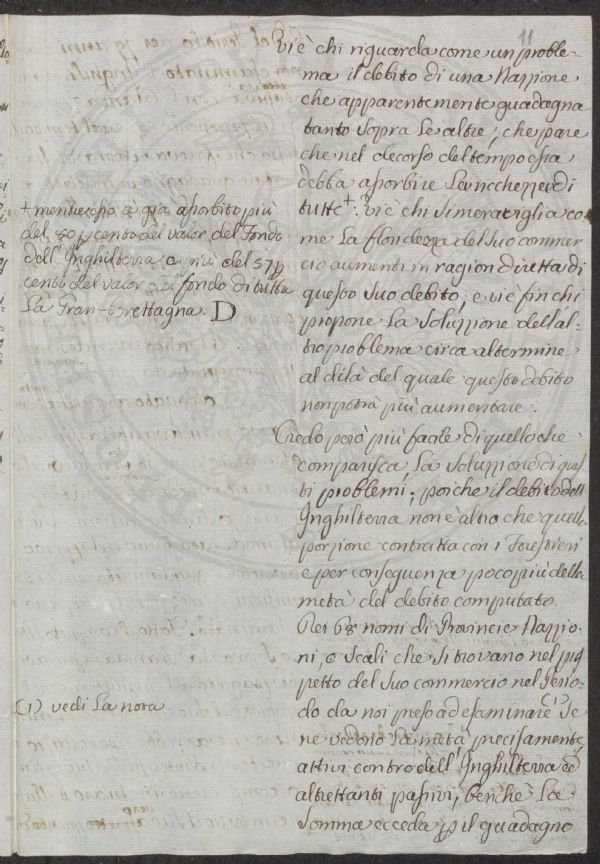 11
Vi è chi riguarda come un proble-
ma il debito di una Nazzione
che apparentemente guadagna
tanto sopra le altre, che pare
che nel decorso del tempo essa
debba assorbire la ricchezza di
tutte +. Vi è chi si meraviglia co
me la floridezza del suo commer
cio aumenti in ragion diretta di
questo suo debito, e vi è fin chi
propone la soluzzione dell'al-
tro problema circa al termine
al di là del quale questo debito
non potrà più aumentare.
Credo però più facile di quello che
comparisca, la soluzzione di ques
ti problemi, poiche il debito dell'
Inghilterra non è altro che quella
porzione contratta con i Forestieri
e per conseguenza poco più della
metà del debito computato.
Nei 68 nomi di Provincie Nazzio-
ni, e Scali che si trovano nel pro
petto del suo commercio nel Perio-
do da noi preso ad esaminare (1) se
ne vedono la metà precisamente
attivi contro dell'Inghilterra ed
altrettanti passivi, benche la
somma ecceda p il guadagno
+ mentre essa à già assorbito più
del 50 p cento del valor del Fondo
dell'Inghilterra e più del 37 p
cento del valor del fondo di tutta
La Gran-brettagna. D
(1) vedi La nota